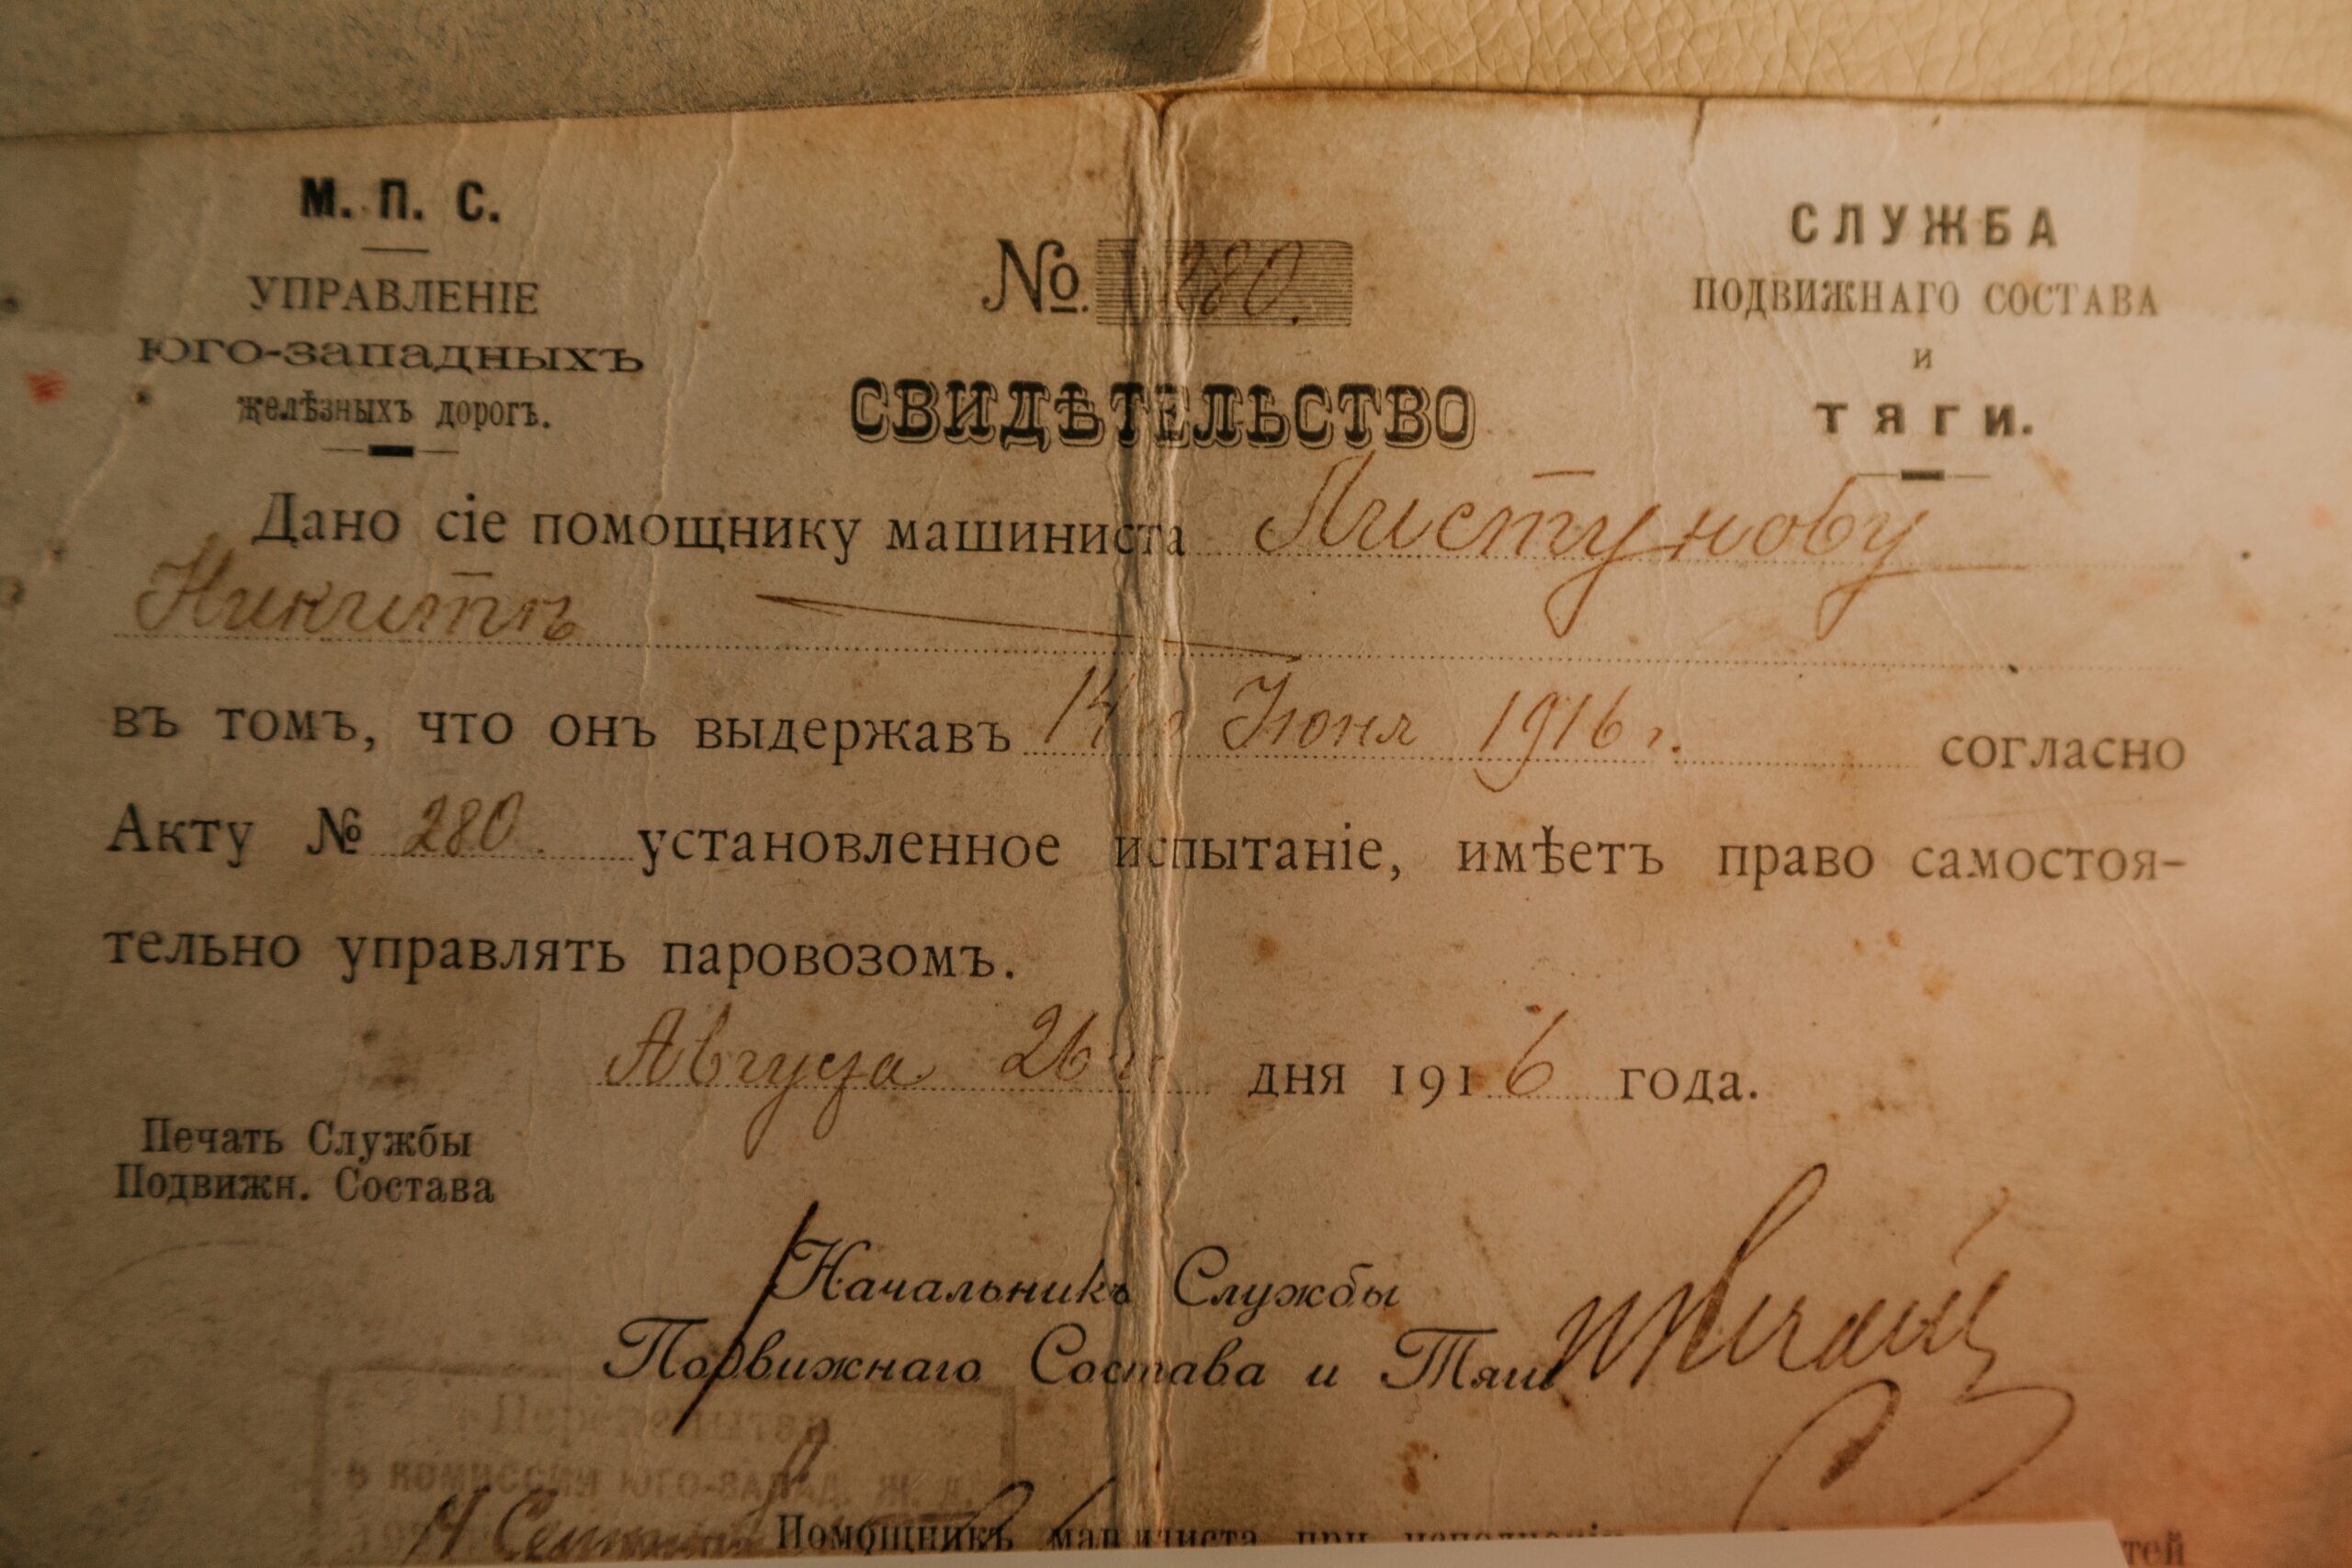 М. П. С.
УПРАВЛЕНІЕ
ЮГО-ЗАПАДНЫХЪ
желѣзныхъ дорогъ.
№. 280.
СЛУЖБА
ПОДВИЖНАГО СОСТАВА
и
ТЯГИ.
СВИДѢТЕЛЬСТВО
Дано сіе помощнику машиниста Листунову
Никитѣ
въ томъ, что онъ выдержавъ 14 Іюня 1916 г. согласно
Акту № 280. установленное испытаніе, имѣетъ право самостоя-
тельно управлять паровозомъ.
Августа 26 дня 1916 года.
Печать Службы
Подвижн. Состава
Начальникъ Службы
Подвижнаго Состава и Тяги
в КОМИССИИ ЮГО-ЗАПАД. Ж. Д.
Помощникъ машиниста при